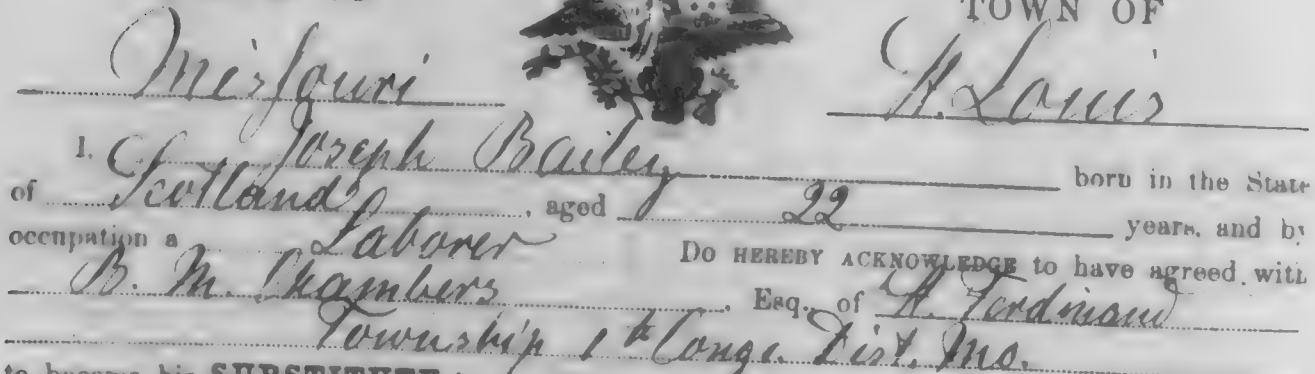 TOWN OF
Missouri St. Louis
I, Joseph Bailey born in the State
of Scotland, aged 22 years, and by
occupation a Laborer Do HEREBY ACKNOWLEDGE to have agreed with
B. M. Chambers, Esq., of St. Ferdinand
Township 1th Congl. Dist. Mo.
to become his SUBSTITUTE